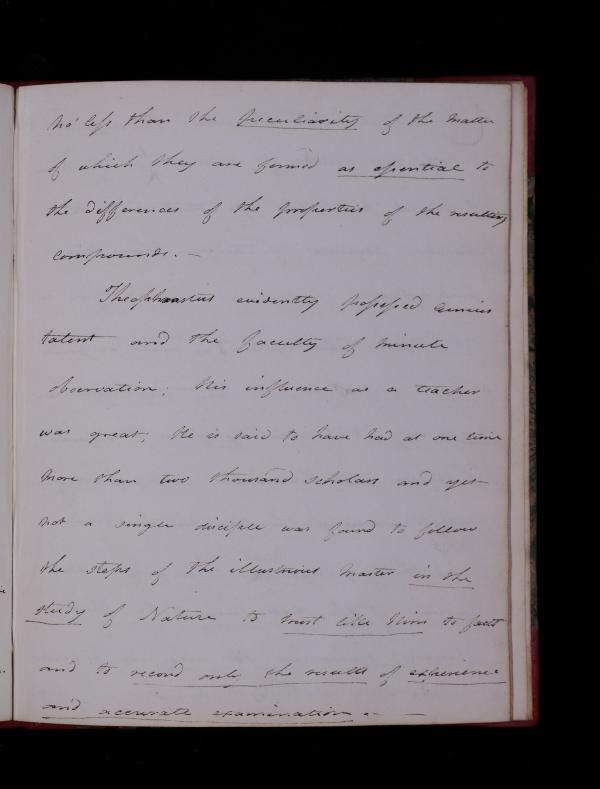 no' less than the peculiarity of the matter
of which they are formed as essential to
the differences of the properties of the resulting
compounds. –
Theophrastus evidently possessed Genius
talent and the faculty of minute
observation; his influence as a teacher
was great; He is said to have had at one time
more than two thousand scholars and yet
not a single disciple was found to follow
the steps of the illustrious Master in the
study of Nature to trust like Him to fact
and to record only the results of experience
and accurate examination. –